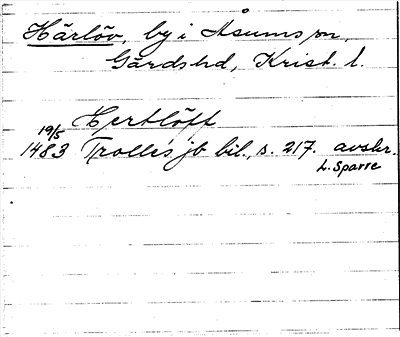 Härlöv, by i Åsums sn,
Gärds hd, Krist. l.
Hertlöff
19/5
1483 Trolles jb bil., s. 217. avskr.
L. Sparre